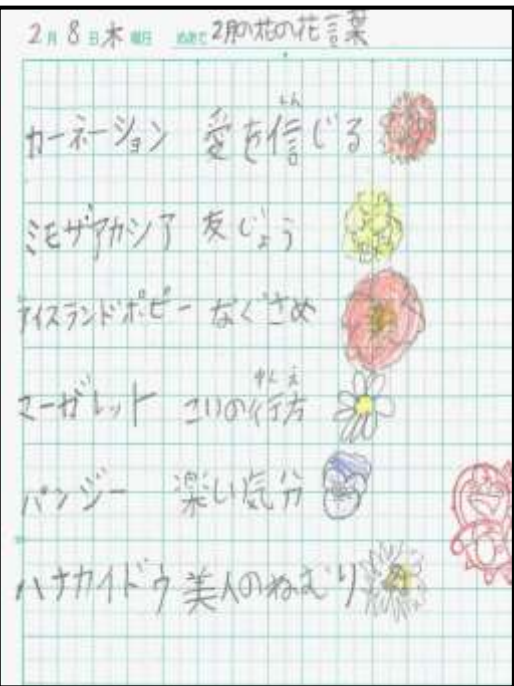 2月8日木曜日 めあて 2月の花の花言葉
カーネーション 愛を信じる
しん
ミモザアカシア 友じょう
アイスランドポピー なぐさめ
マーガレット こいの行方
ゆくえ
パンジー 楽しい気分
ハナカイドウ 美人のねむり